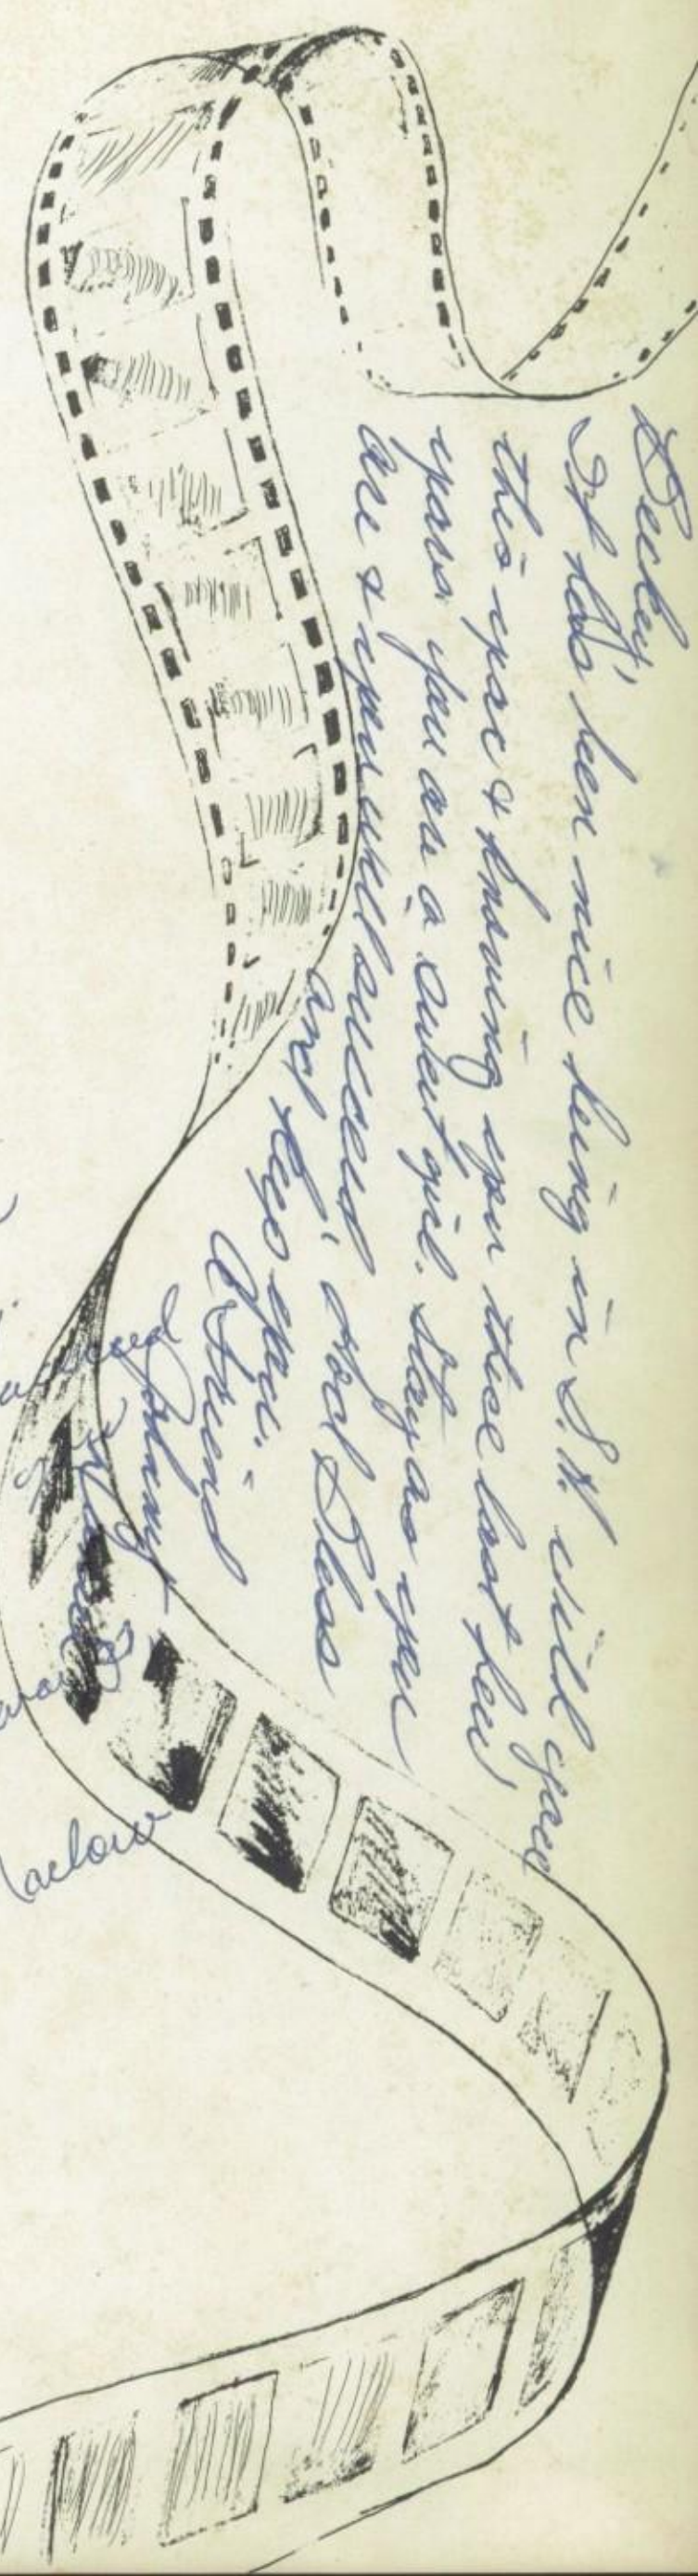 Becky,
It has been nice being in S.H. with you
this year & knowing you these last few
years. you are a sweet girl. Stay as you
are & you will succeed. God Bless
and keep you.
A Friend
Johnny